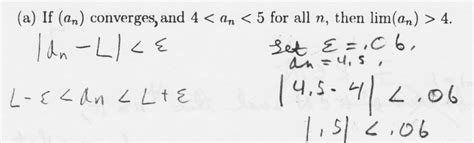 (a) If (aₙ) converges, and 4 < aₙ < 5 for all n, then lim(aₙ) > 4.
|aₙ - L| < ε
set ε = .06,
aₙ = 4,5,
L - ε < aₙ < L + ε
|4,5 - 4| < .06
|,5| < .06